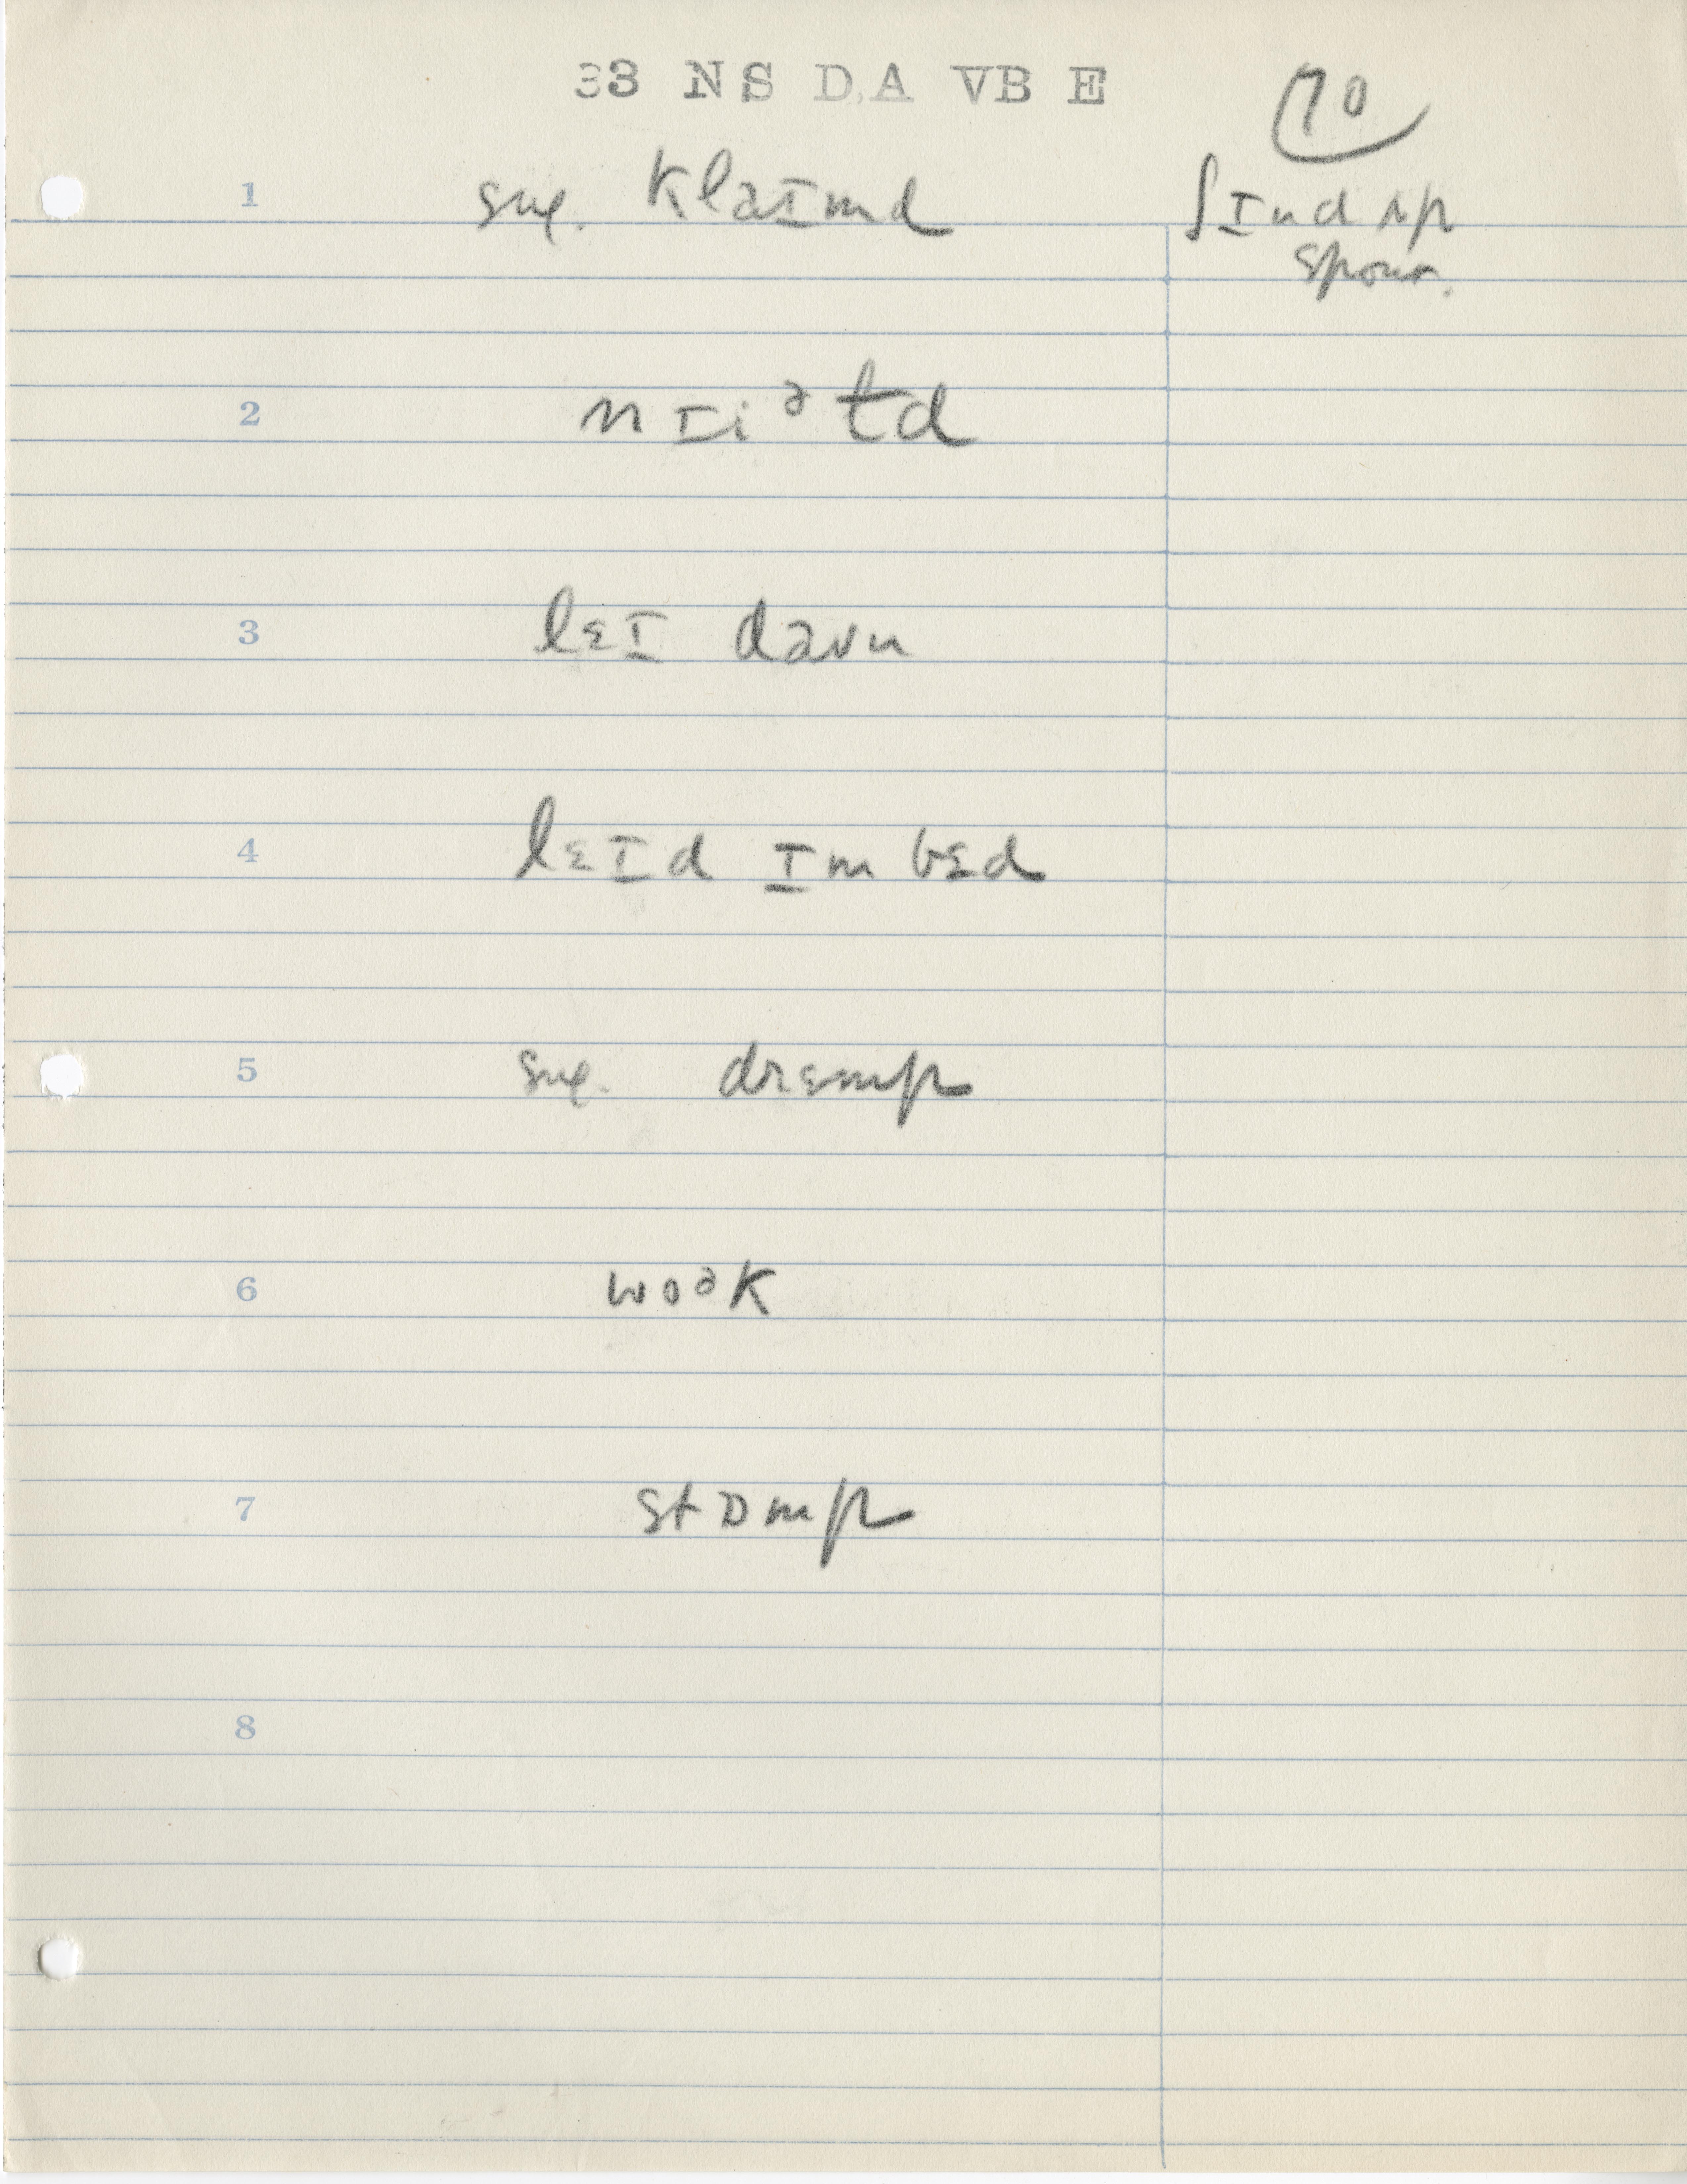 33 NS DA VB E
70
1 sug. klaɪmd ʃɪnd ʌp
spon.
2 nɪiᵊtd
3 lɛɪ daʊn
4 lɛɪd ɪm bɛd
5 sug. drɛmp
6 woᵊk
7 stɒmp
8